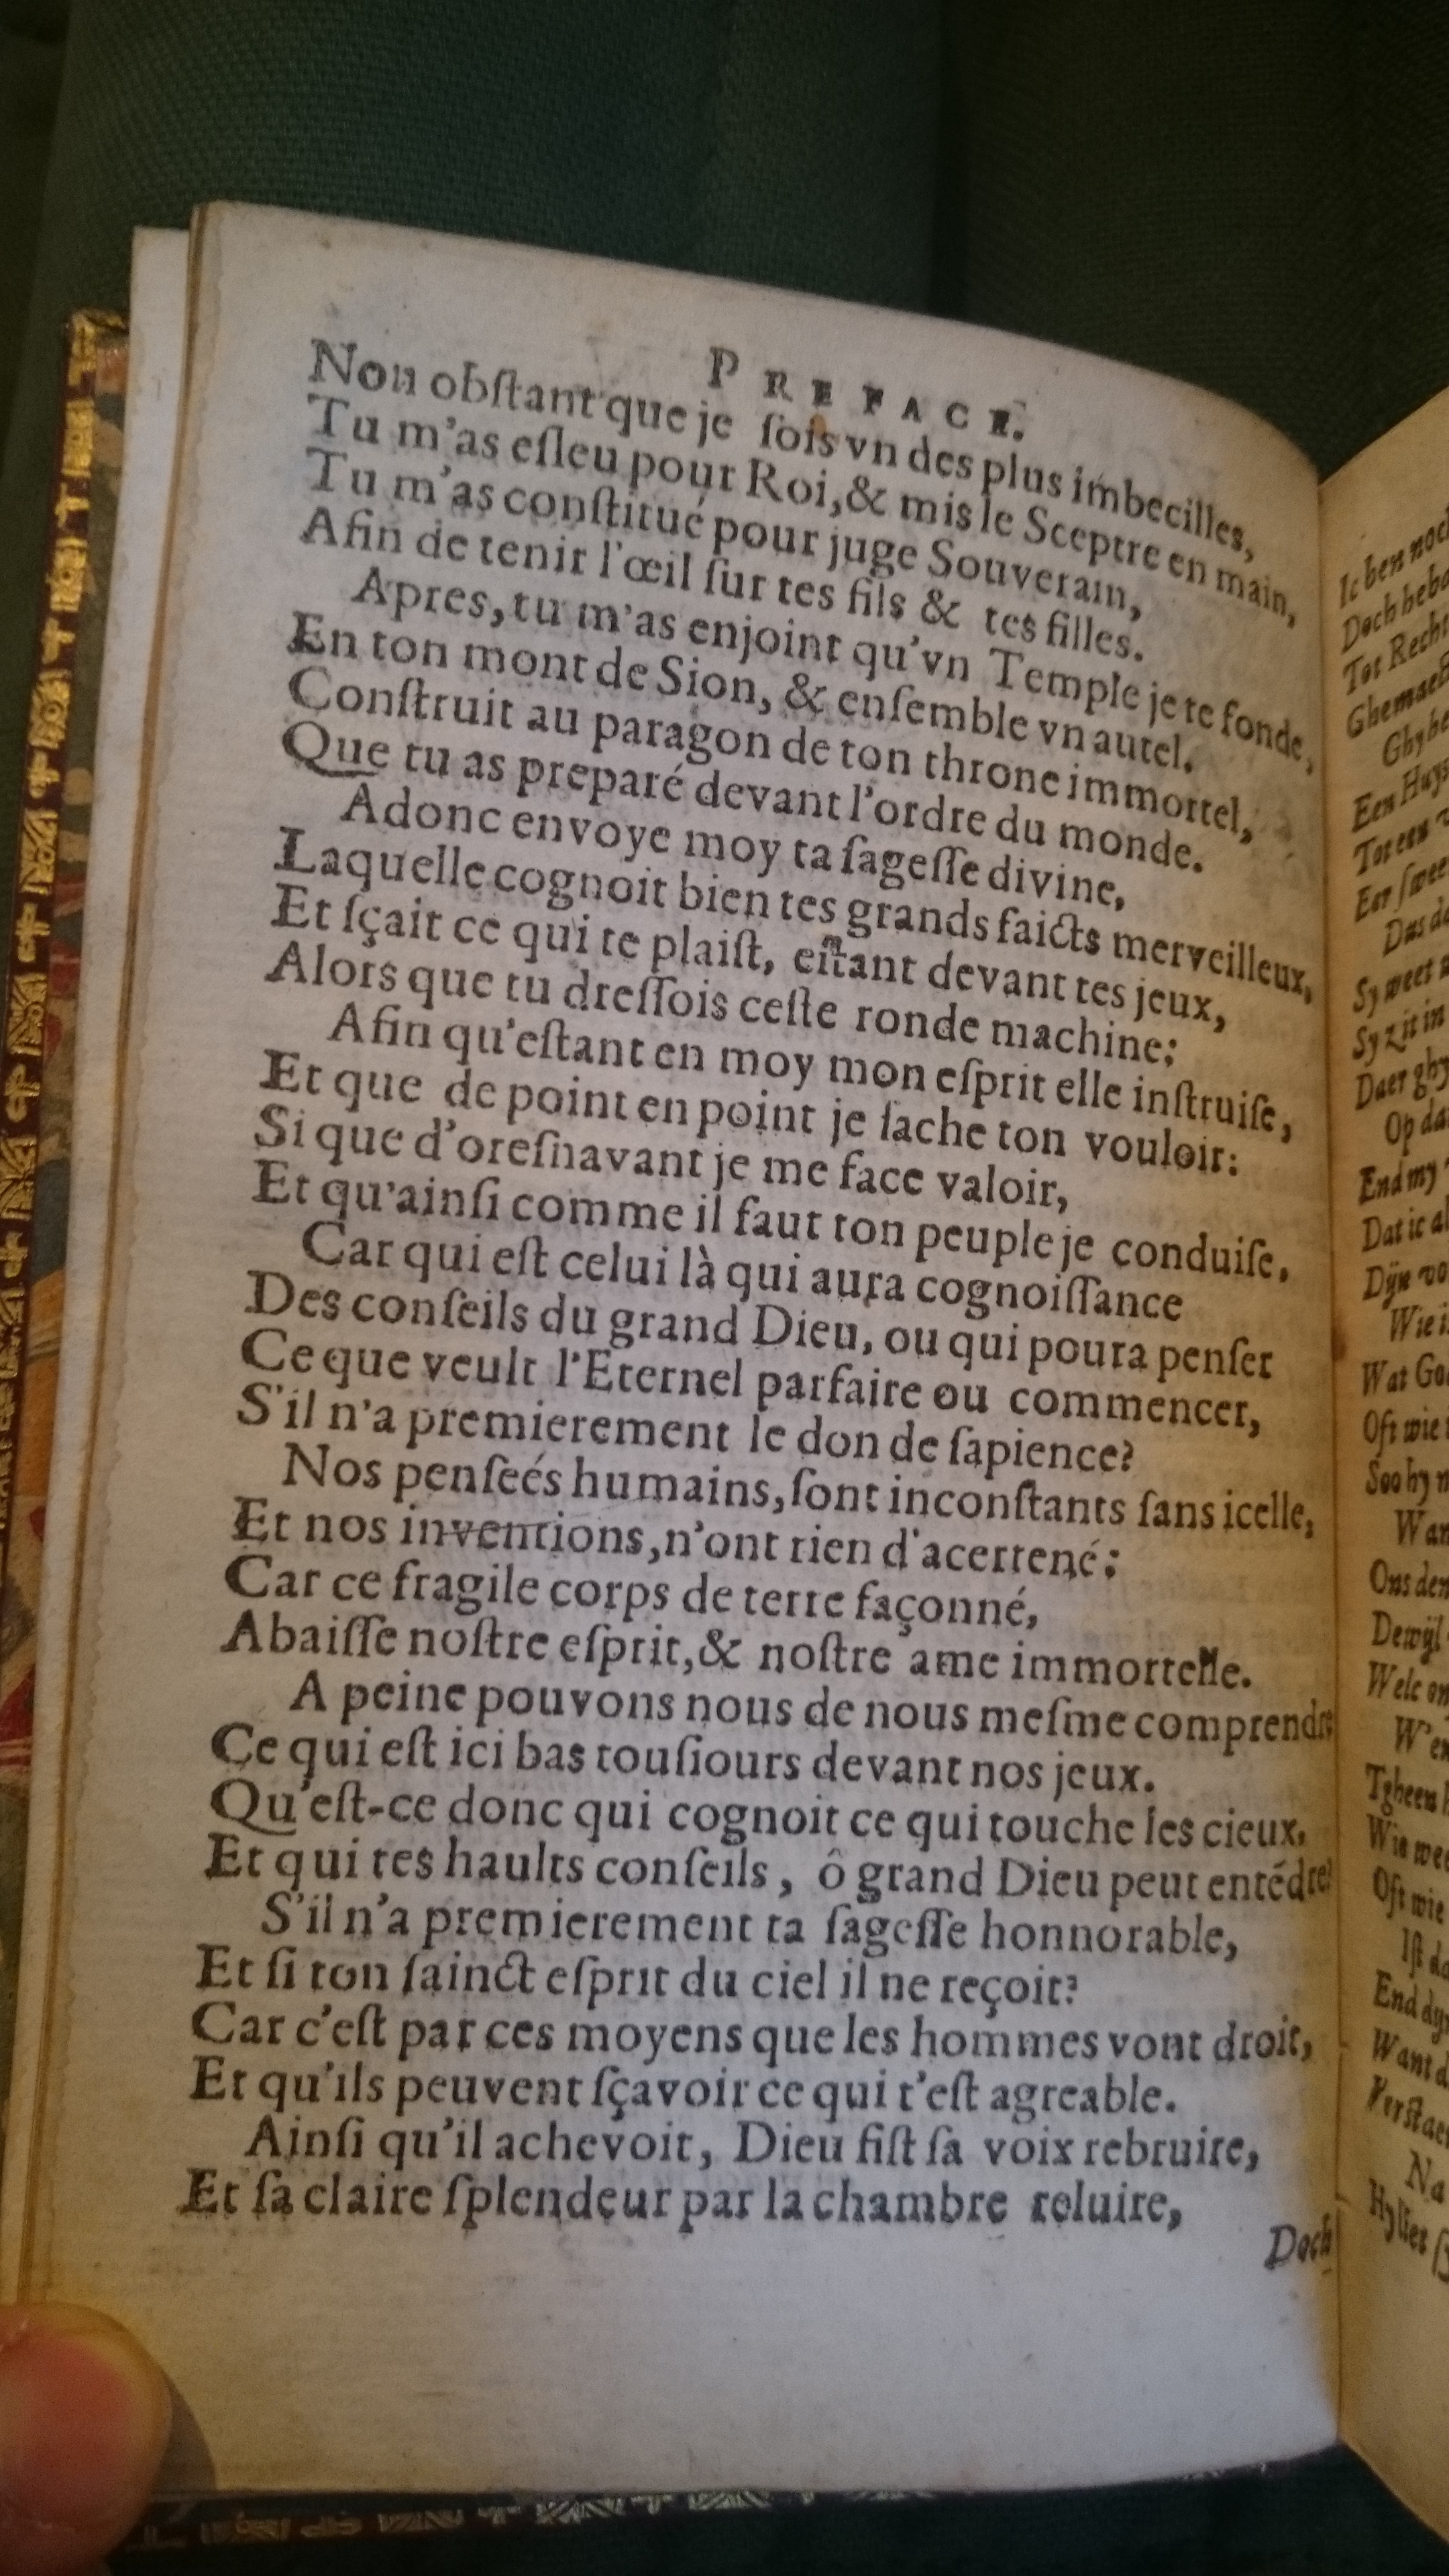 PREFACE.
Non obſtant que je ſois vn des plus imbecilles,
Tu m'as eſleu pour Roi, & mis le Sceptre en main,
Tu m'as conſtitué pour juge Souverain,
Afin de tenir l'œil ſur tes fils & tes filles.
Apres, tu m'as enjoint qu'vn Temple je te fonde,
En ton mont de Sion, & enſemble vn autel.
Conſtruit au paragon de ton throne immortel,
Que tu as preparé devant l'ordre du monde.
Adonc envoye moy ta ſageſſe divine,
Laquelle cognoit bien tes grands faicts merveilleux,
Et ſçait ce qui te plaiſt, eſtant devant tes jeux,
Alors que tu dreſſois ceſte ronde machine;
Afin qu'eſtant en moy mon eſprit elle inſtruiſe,
Et que de point en point je ſache ton vouloir:
Si que d'oreſnavant je me face valoir,
Et qu'ainſi comme il faut ton peuple je conduiſe.
Car qui eſt celui là qui aura cognoiſſance
Des conſeils du grand Dieu, ou qui poura penſer
Ce que veult l'Eternel parfaire ou commencer,
S'il n'a premierement le don de ſapience?
Nos penſeés humains, ſont inconſtants ſans icelle,
Et nos inventions, n'ont rien d'acertené;
Car ce fragile corps de terre façonné,
Abaiſſe noſtre eſprit, & noſtre ame immortelle.
A peine pouvons nous de nous meſme comprendre
Ce qui eſt ici bas touſiours devant nos jeux.
Qu'eſt-ce donc qui cognoit ce qui touche les cieux,
Et qui tes haults conſeils, ô grand Dieu peut entédre?
S'il n'a premierement ta ſageſſe honnorable,
Et ſi ton ſainct eſprit du ciel il ne reçoit?
Car c'eſt par ces moyens que les hommes vont droit,
Et qu'ils peuvent ſçavoir ce qui t'eſt agreable.
Ainſi qu'il achevoit, Dieu fiſt ſa voix rebruire,
Et ſa claire ſplendeur par la chambre reluire,
Doch
Ic ben
Doch
Tot
Een
Tot een
Eer
Sy weet
Sy zit in
Daer ghy
Op
End my
Dat ic
Dijn
Wie
Wat
Oft wie
Soo hy
Ons
Dewijl
Welc
Tgheen
Wie
Oft wie
Want
Na
Hy liet